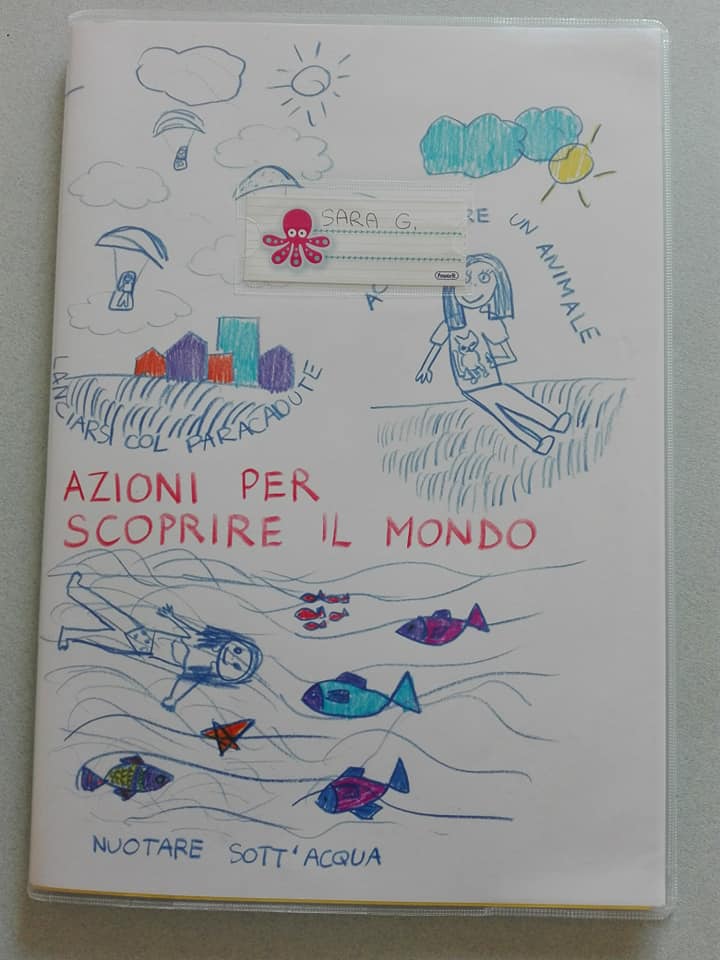 SARA G.
UN ANIMALE
LANCIARSI COL PARACADUTE
AZIONI PER
SCOPRIRE IL MONDO
NUOTARE SOTT'ACQUA